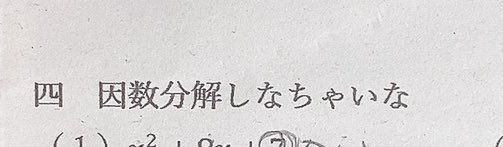 四 因数分解しなちゃいな
(1)